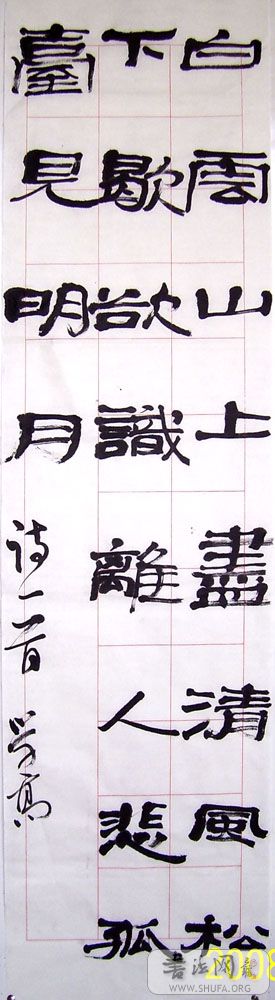 白雲山上盡清風松
下歇欲識離人悲孤
臺見明月
诗一首 学高
2008
书法网
WWW.SHUFA.ORG